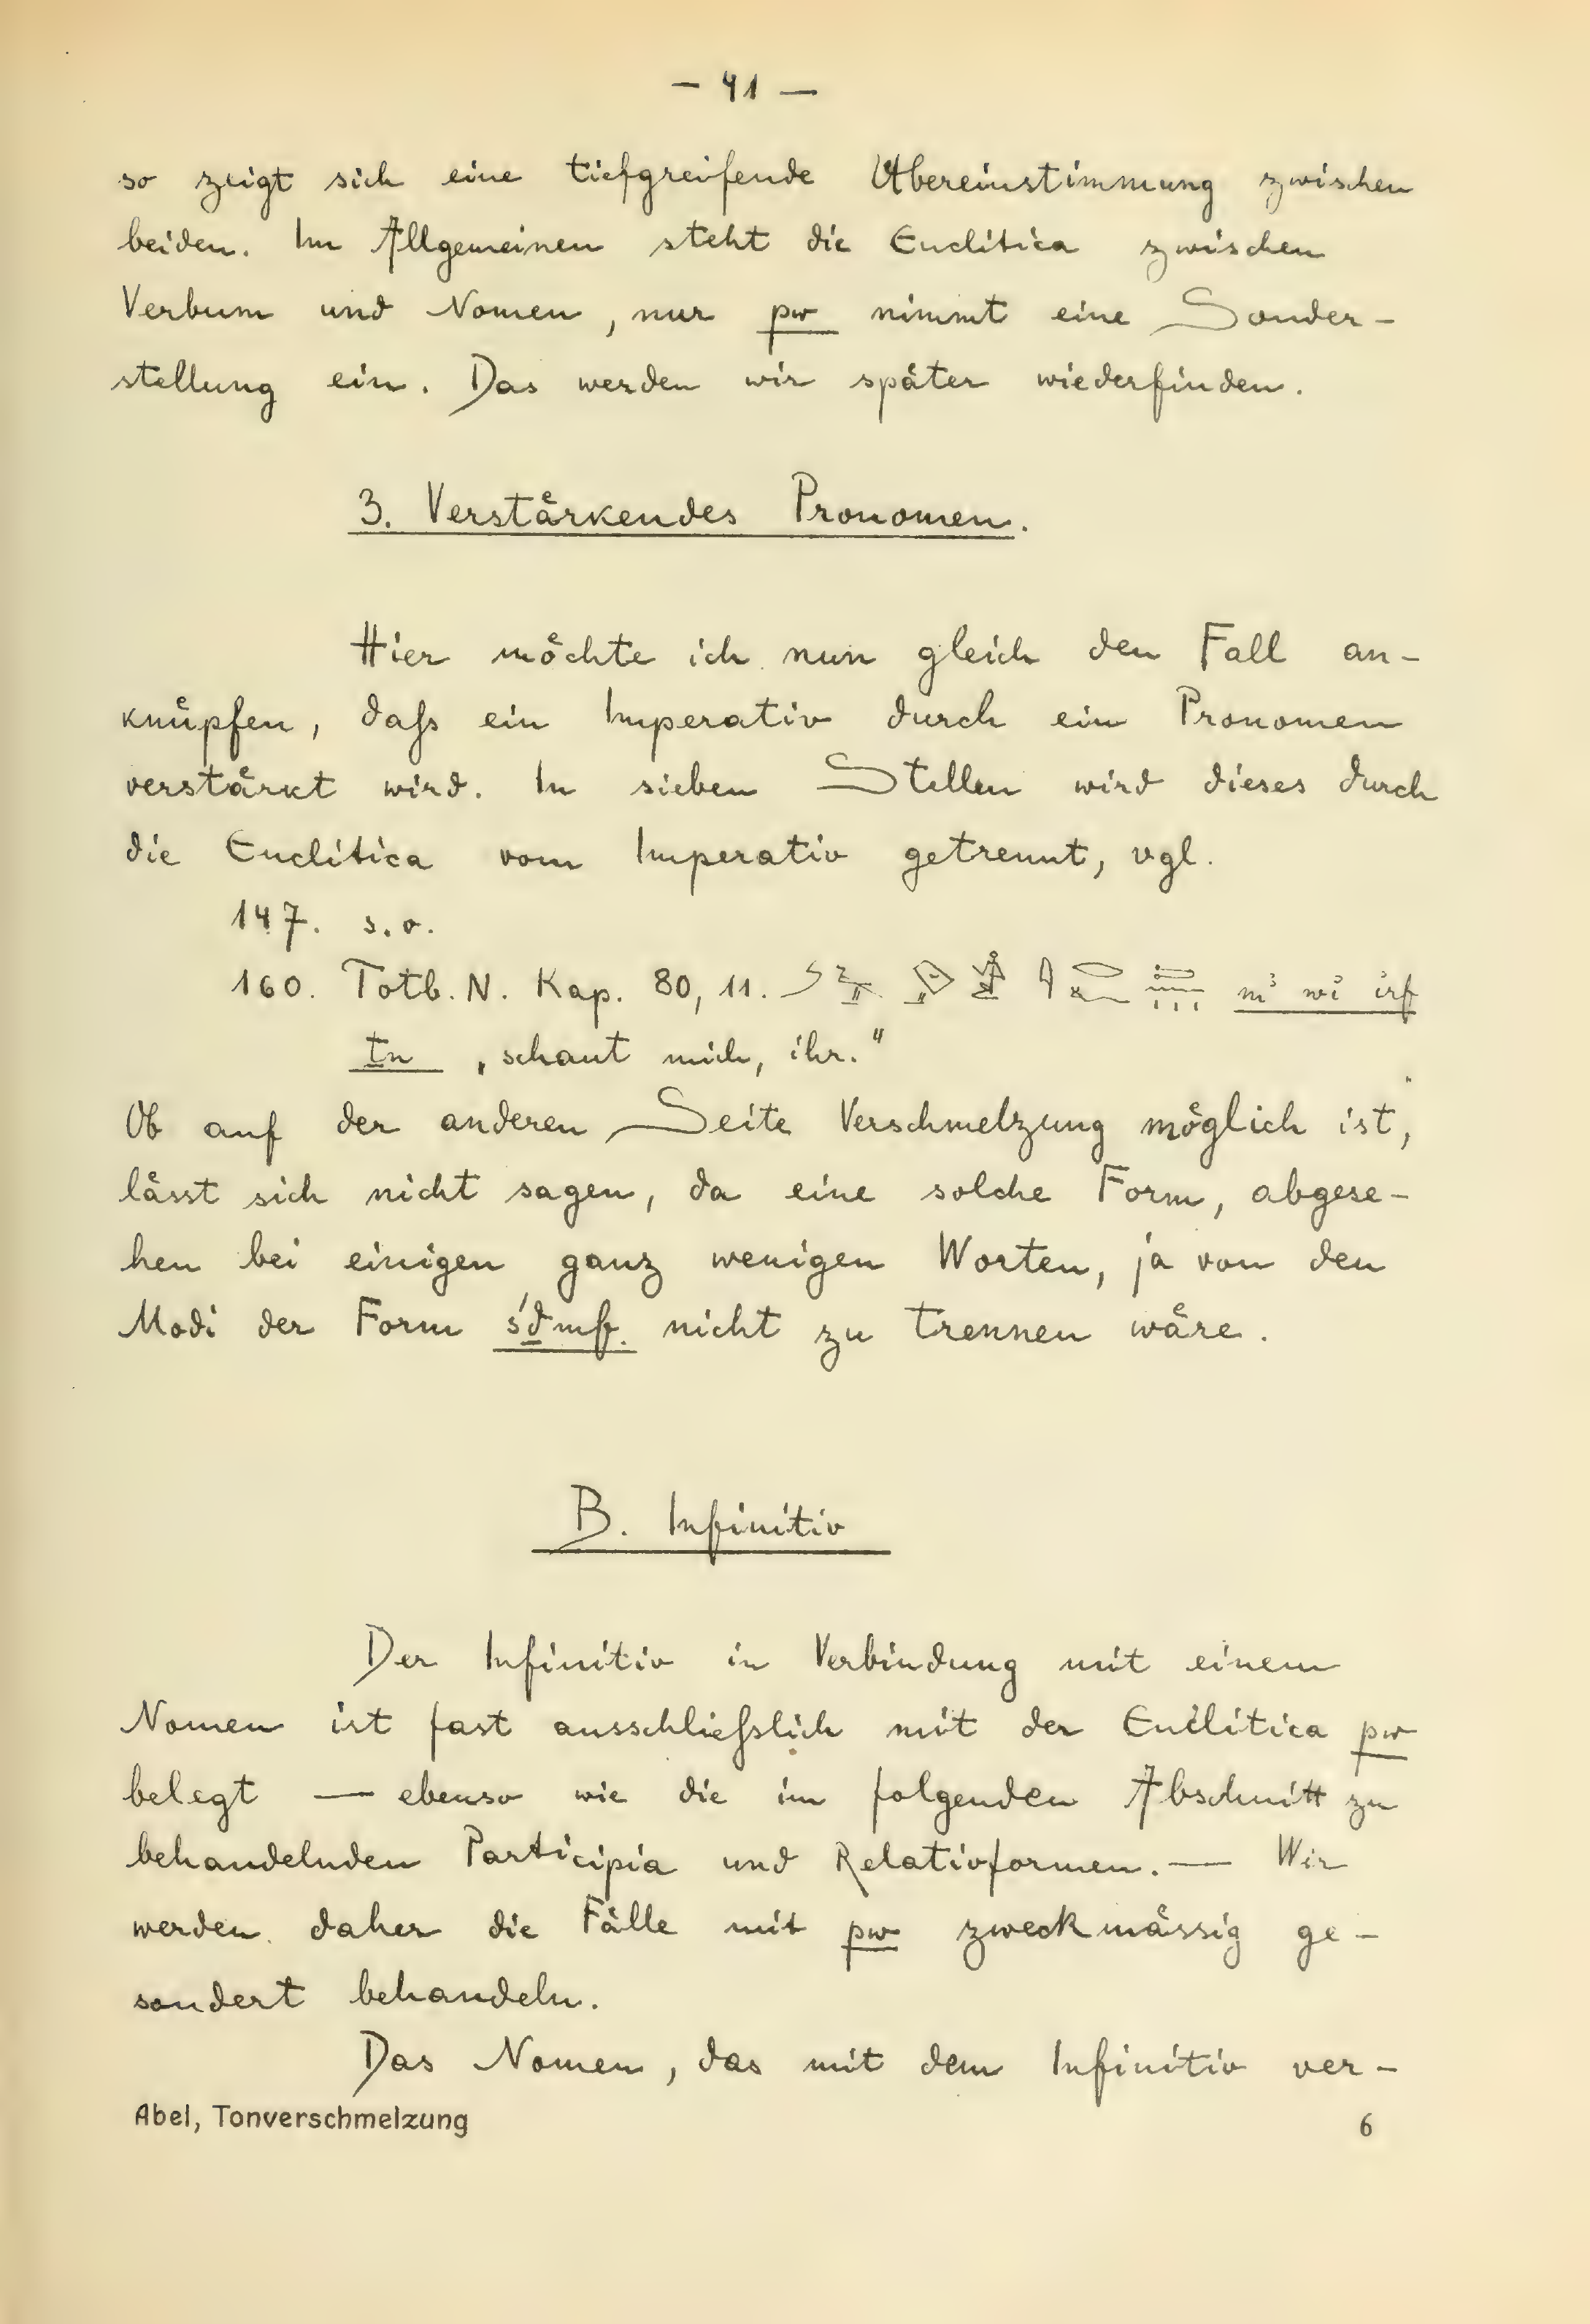 — 41 —
so zeigt sich eine tiefgreifende Übereinstimmung zwischen
beiden. Im Allgemeinen steht die Enclitica zwischen
Verbum und Nomen, nur pw nimmt eine Sonder-
stellung ein. Das werden wir später wiederfinden.
3. Verstärkendes Pronomen.
Hier möchte ich nun gleich den Fall an-
knüpfen, daß ein Imperativ durch ein Pronomen
verstärkt wird. In sieben Stellen wird dieses durch
die Enclitica vom Imperativ getrennt, vgl.
147. s.o.
160. Totb. N. Kap. 80, 11. mꜣ wi irf
ṯn „schaut mich, ihr."
Ob auf der anderen Seite Verschmelzung möglich ist,
lässt sich nicht sagen, da eine solche Form, abgese-
hen bei einigen ganz wenigen Worten, ja von den
Modi der Form śḏmf nicht zu trennen wäre.
B. Infinitiv
Der Infinitiv in Verbindung mit einem
Nomen ist fast ausschließlich mit der Enclitica pw
belegt — ebenso wie die im folgenden Abschnitt zu
behandelnden Participia und Relativformen. — Wir
werden daher die Fälle mit pw zweckmässig ge-
sondert behandeln.
Das Nomen, das mit dem Infinitiv ver-
Abel, Tonverschmelzung 6